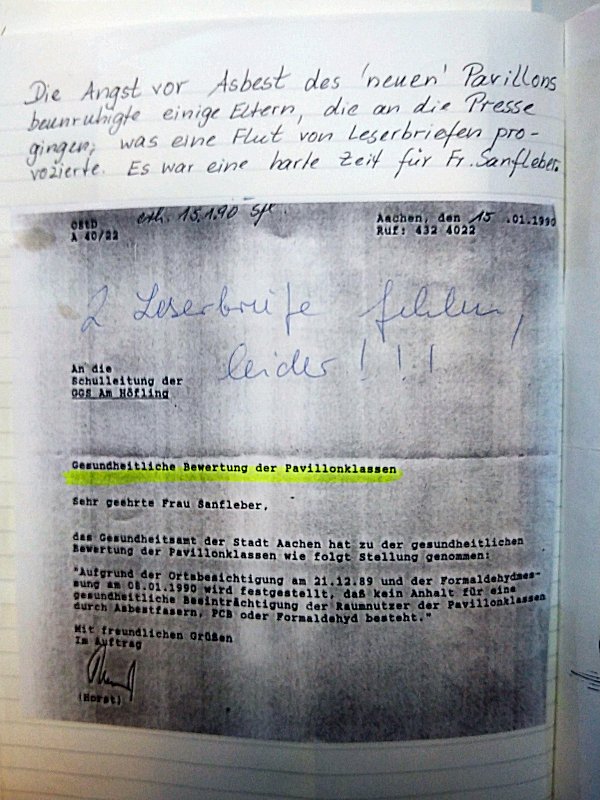 Die Angst vor Asbest des 'neuen' Pavillons
beunruhigte einige Eltern, die an die Presse
gingen, was eine Flut von Leserbriefen pro-
vozierte. Es war eine harte Zeit für Fr. Sanfleber.
OStD
A 40/22
erh. 15.1.90
Aachen, den 15 .01.1990
Ruf: 432 4022
2 Leserbriefe fehlen,
leider!!!
An die
Schulleitung der
GGS Am Höfling
Gesundheitliche Bewertung der Pavillonklassen
Sehr geehrte Frau Sanfleber,
das Gesundheitsamt der Stadt Aachen hat zu der gesundheitlichen
Bewertung der Pavillonklassen wie folgt Stellung genommen:
"Aufgrund der Ortsbesichtigung am 21.12.89 und der Formaldehydmes-
sung am 08.01.1990 wird festgestellt, daß kein Anhalt für eine
gesundheitliche Beeinträchtigung der Raumnutzer der Pavillonklassen
durch Asbestfasern, PCB oder Formaldehyd besteht."
Mit freundlichen Grüßen
Im Auftrag
(Horst)